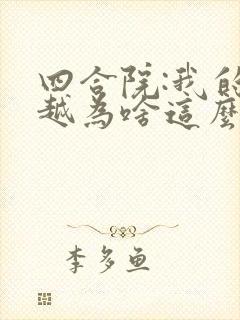 四合院:我的
越為啥這麼
李多魚